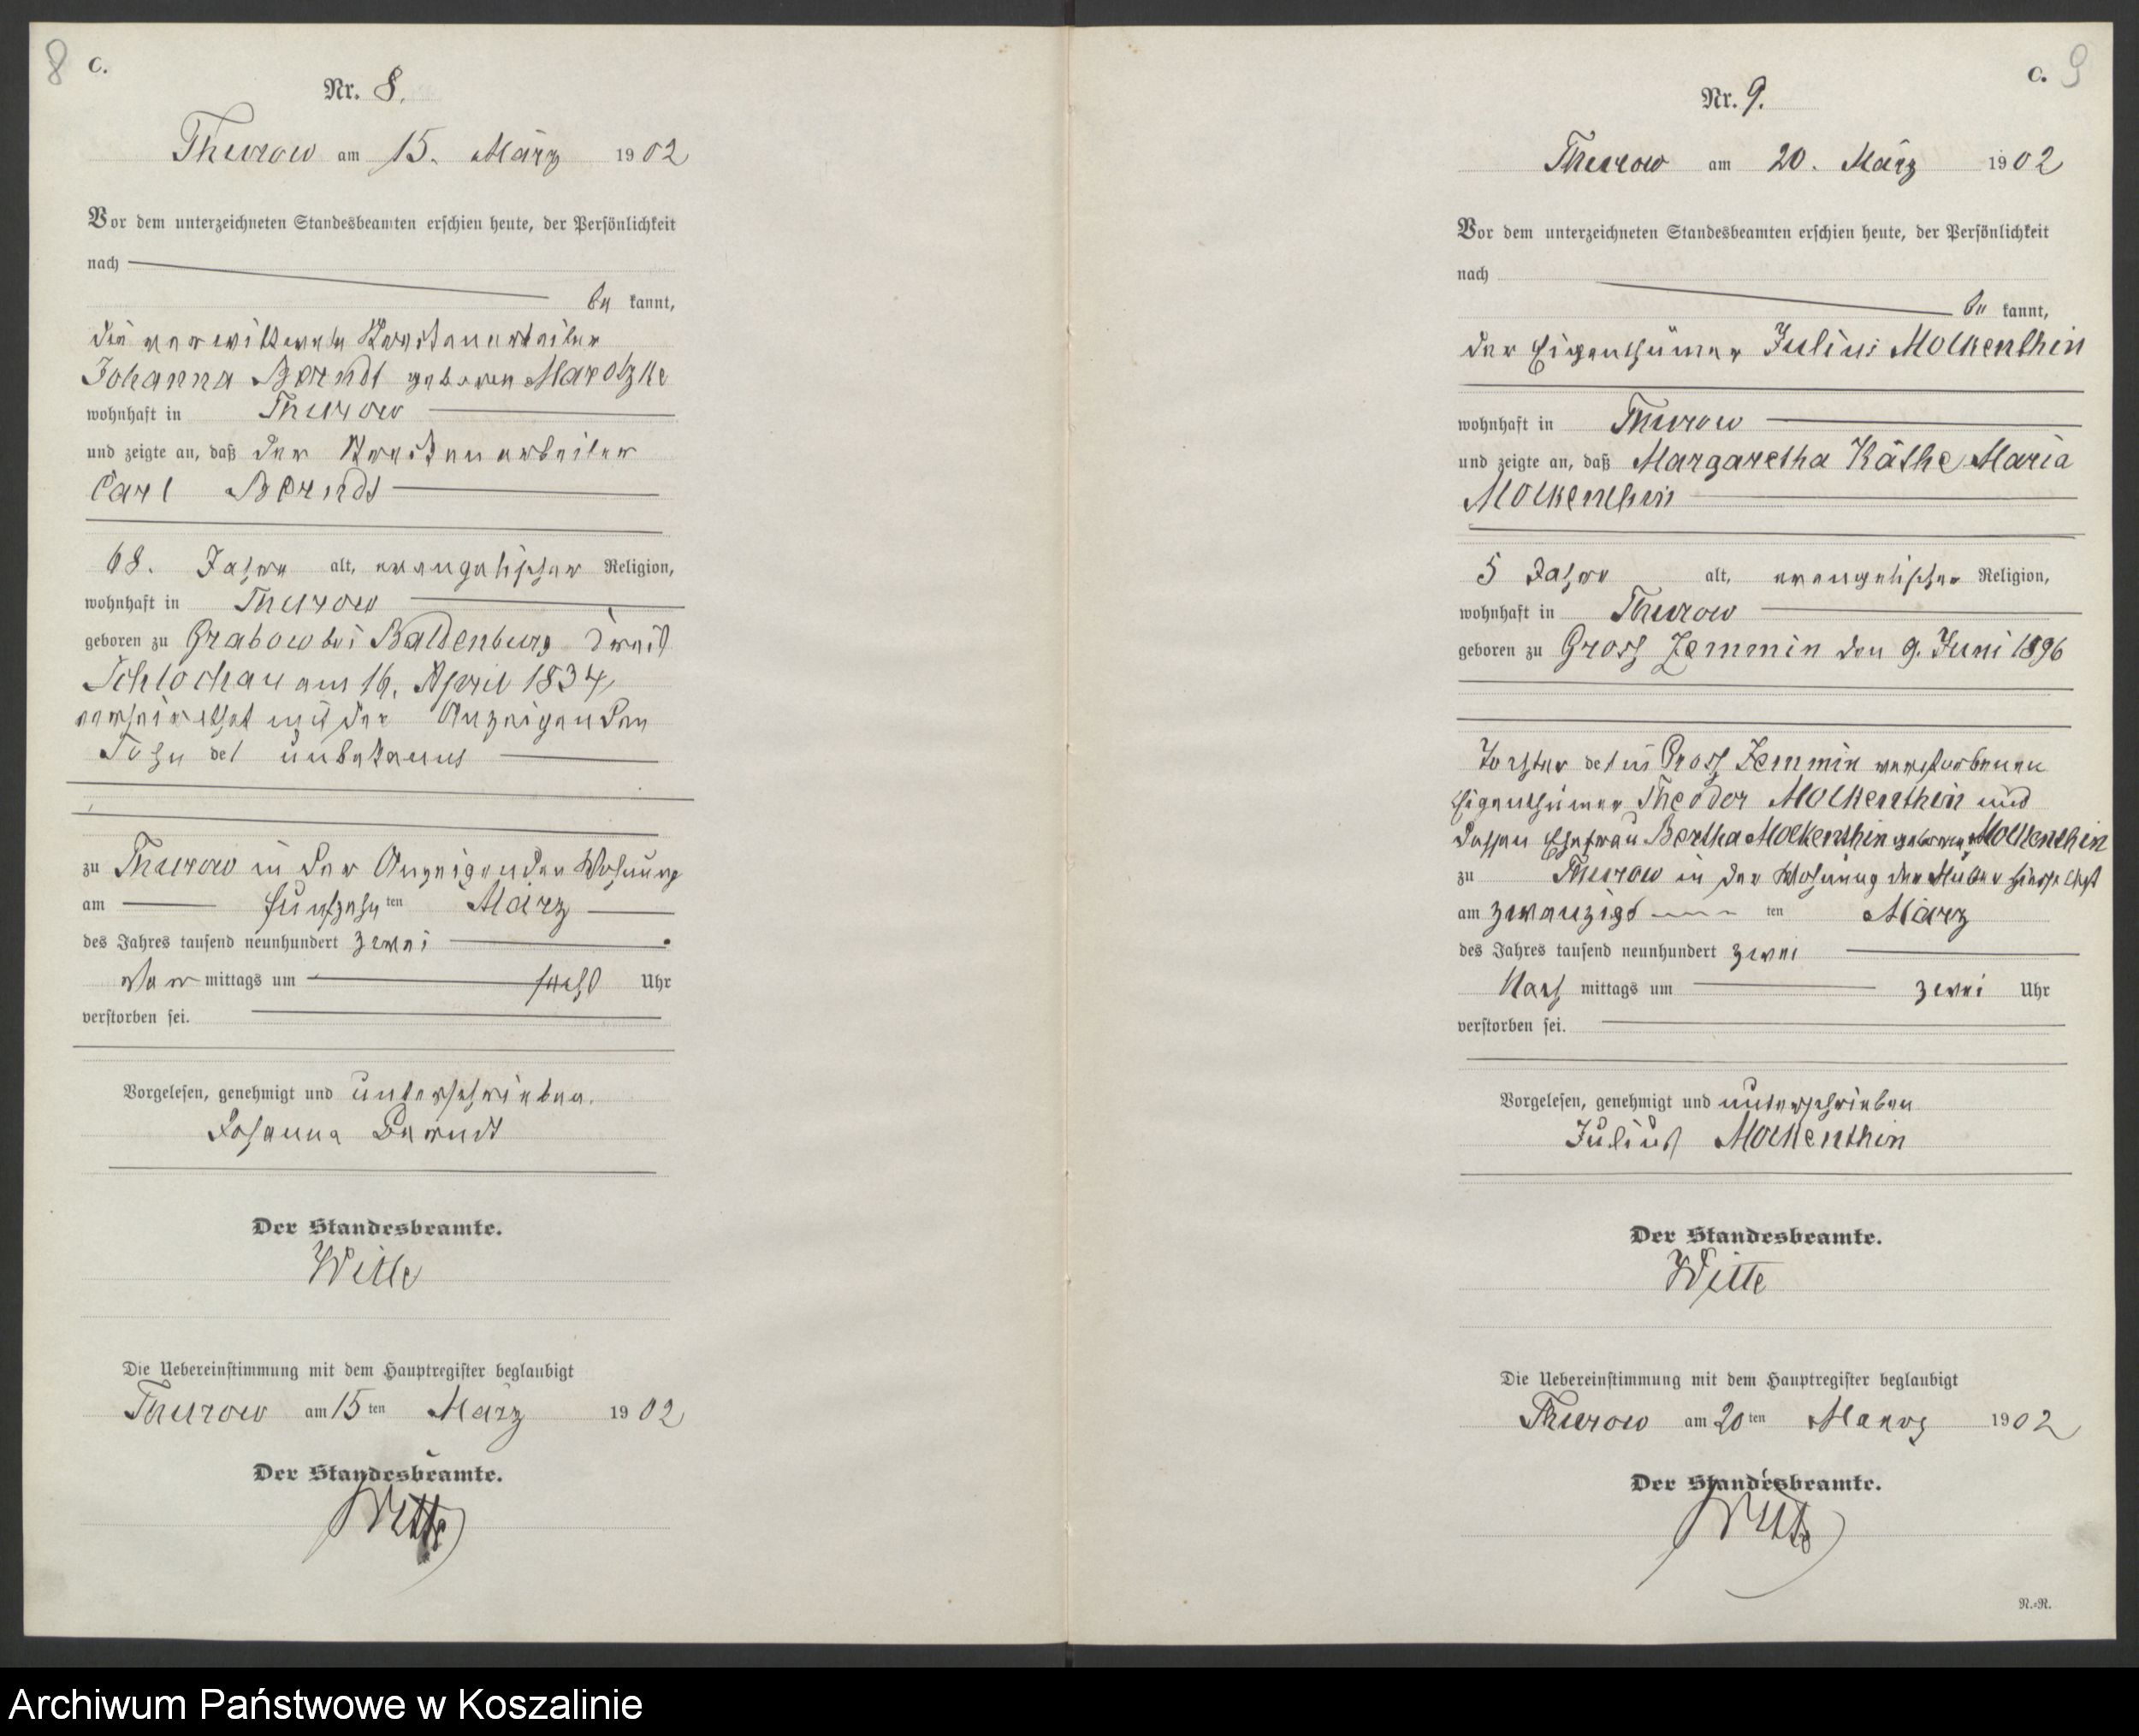 8
C.
Nr. 8.
Thurow am 15. März 1902
Vor dem unterzeichneten Standesbeamten erschien heute, der Persönlichkeit
nach
be kannt,
die verwittwete
Johanna Berndt geboren Marotzke
wohnhaft in Thurow
und zeigte an, daß der
Carl Berndt
68. Jahre alt, evangelischer Religion,
wohnhaft in Thurow
geboren zu Grabow bei Baldenburg Kreis
Schlochau am 16. April 1834
verheirathet mit der Anzeigenden
Sohn des unbekannt
zu Thurow in der Anzeigenden Wohnung
am fünfzehn ten März
des Jahres tausend neunhundert zwei
Vor mittags um Uhr
verstorben sei.
Vorgelesen, genehmigt und unterschrieben.
Johanna Berndt
Der Standesbeamte.
Witte
Die Uebereinstimmung mit dem Hauptregister beglaubigt
Thurow am 15 ten März 1902
Der Standesbeamte.
Witte
C. 9
Nr. 9.
Thurow am 20. März 1902
Vor dem unterzeichneten Standesbeamten erschien heute, der Persönlichkeit
nach
be kannt,
der Eigenthümer Julius Molkenthin
wohnhaft in Thurow
und zeigte an, daß Margaretha Käthe Maria
Molkenthin
5 Jahre alt, evangelischer Religion,
wohnhaft in Thurow
geboren zu Gross Zemmin den 9. Juni 1896
Tochter des in Gross Zemmin verstorbenen
Eigenthümer Theodor Molkenthin und
dessen Ehefrau Bertha Molkenthin geboren Molkenthin
zu Thurow in der Wohnung der Mutter hierselbst
am zwanzigs ten März
des Jahres tausend neunhundert zwei
Nach mittags um zwei Uhr
verstorben sei.
Vorgelesen, genehmigt und unterschrieben
Julius Molkenthin
Der Standesbeamte.
Witte
Die Uebereinstimmung mit dem Hauptregister beglaubigt
Thurow am 20 ten Maerz 1902
Der Standesbeamte.
Witte
N.=N.
Archiwum Państwowe w Koszalinie